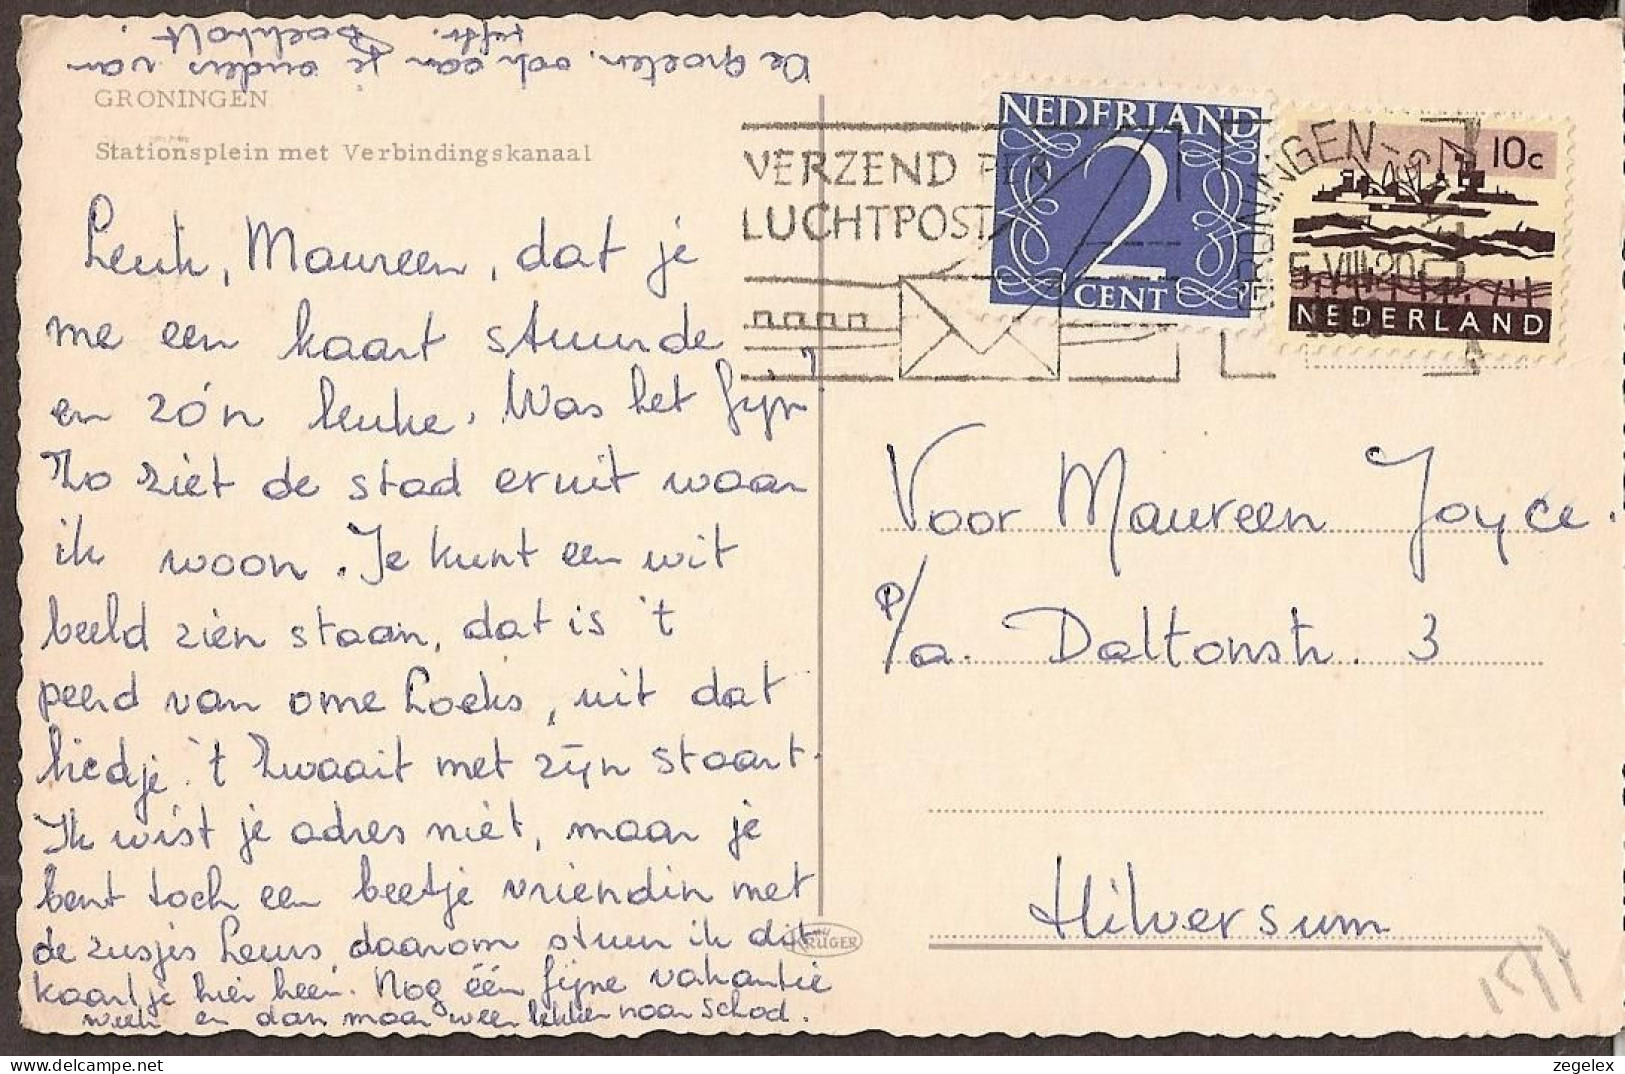 De groeten, ook aan je ouders van
jeffr. Bockholt.
GRONINGEN
Stationsplein met Verbindingskanaal
Leuk, Maureen, dat je
me een kaart stuurde
en zó'n leuke. Was het fijn?
Zo ziet de stad eruit waar
ik woon. Je kunt een wit
beeld zien staan, dat is 't
peerd van ome Loeks, uit dat
liedje 't Zwaait met zijn staart.
Ik wist je adres niet, maar je
bent toch een beetje vriendin met
de zusjes Leurs, daarom stuur ik dit
kaartje hier heen. Nog één fijne vakantie
week en dan maar weer lekker naar school.
VERZEND PER
LUCHTPOST
NEDERLAND
2
CENT
GRONINGEN
5.VIII.20
10c
NEDERLAND
Voor Maureen Joyce.
p/a. Daltonstr. 3
Hilversum
KRUGER
zegelex